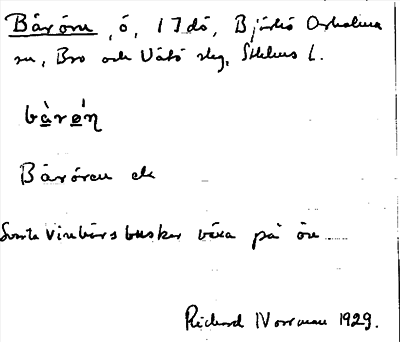 Båröru, ö, 17dö, Björkö Arholma
sn, Bro och Vätö slg, Sthlms l.
bå̀rǿn
Båröran ek
Svarta vinbärsbuskar växa på ön
Richard Norrman 1929.